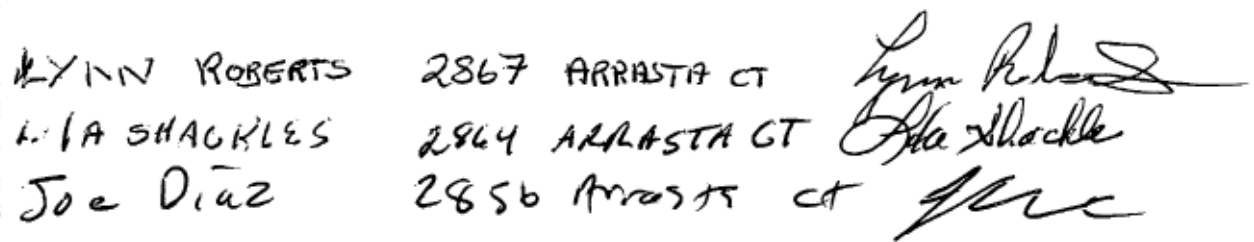 LYNN ROBERTS 2867 ARRASTA CT Lynn
SHACKLES 2864 ARRASTA CT Shackle
Joe Diaz 2856 Arrasta ct